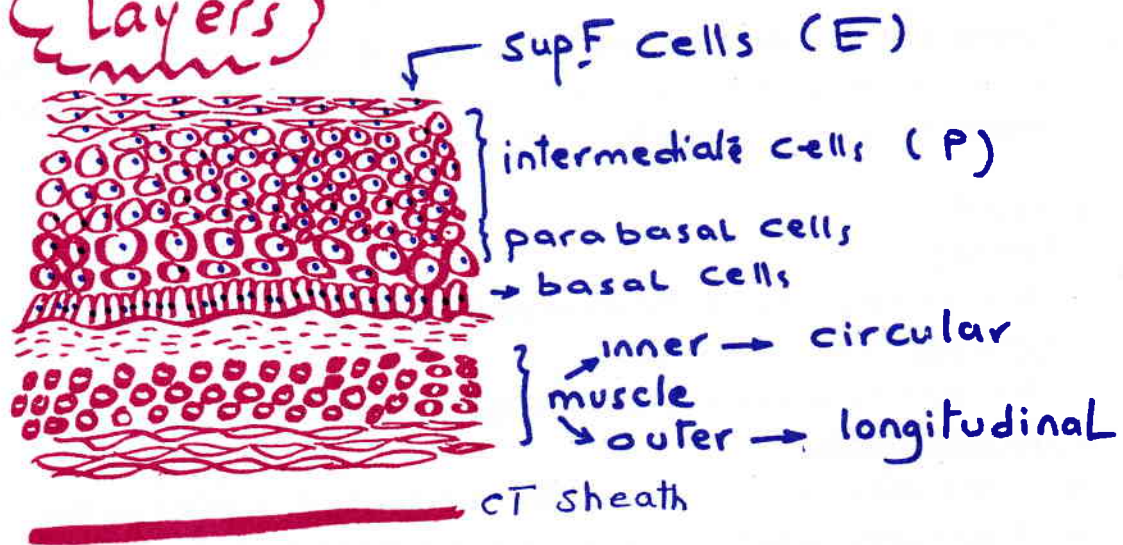 Layers
supF cells (E)
intermediate cells (P)
parabasal cells
→ basal cells
inner → circular
muscle
outer → longitudinal
CT sheath